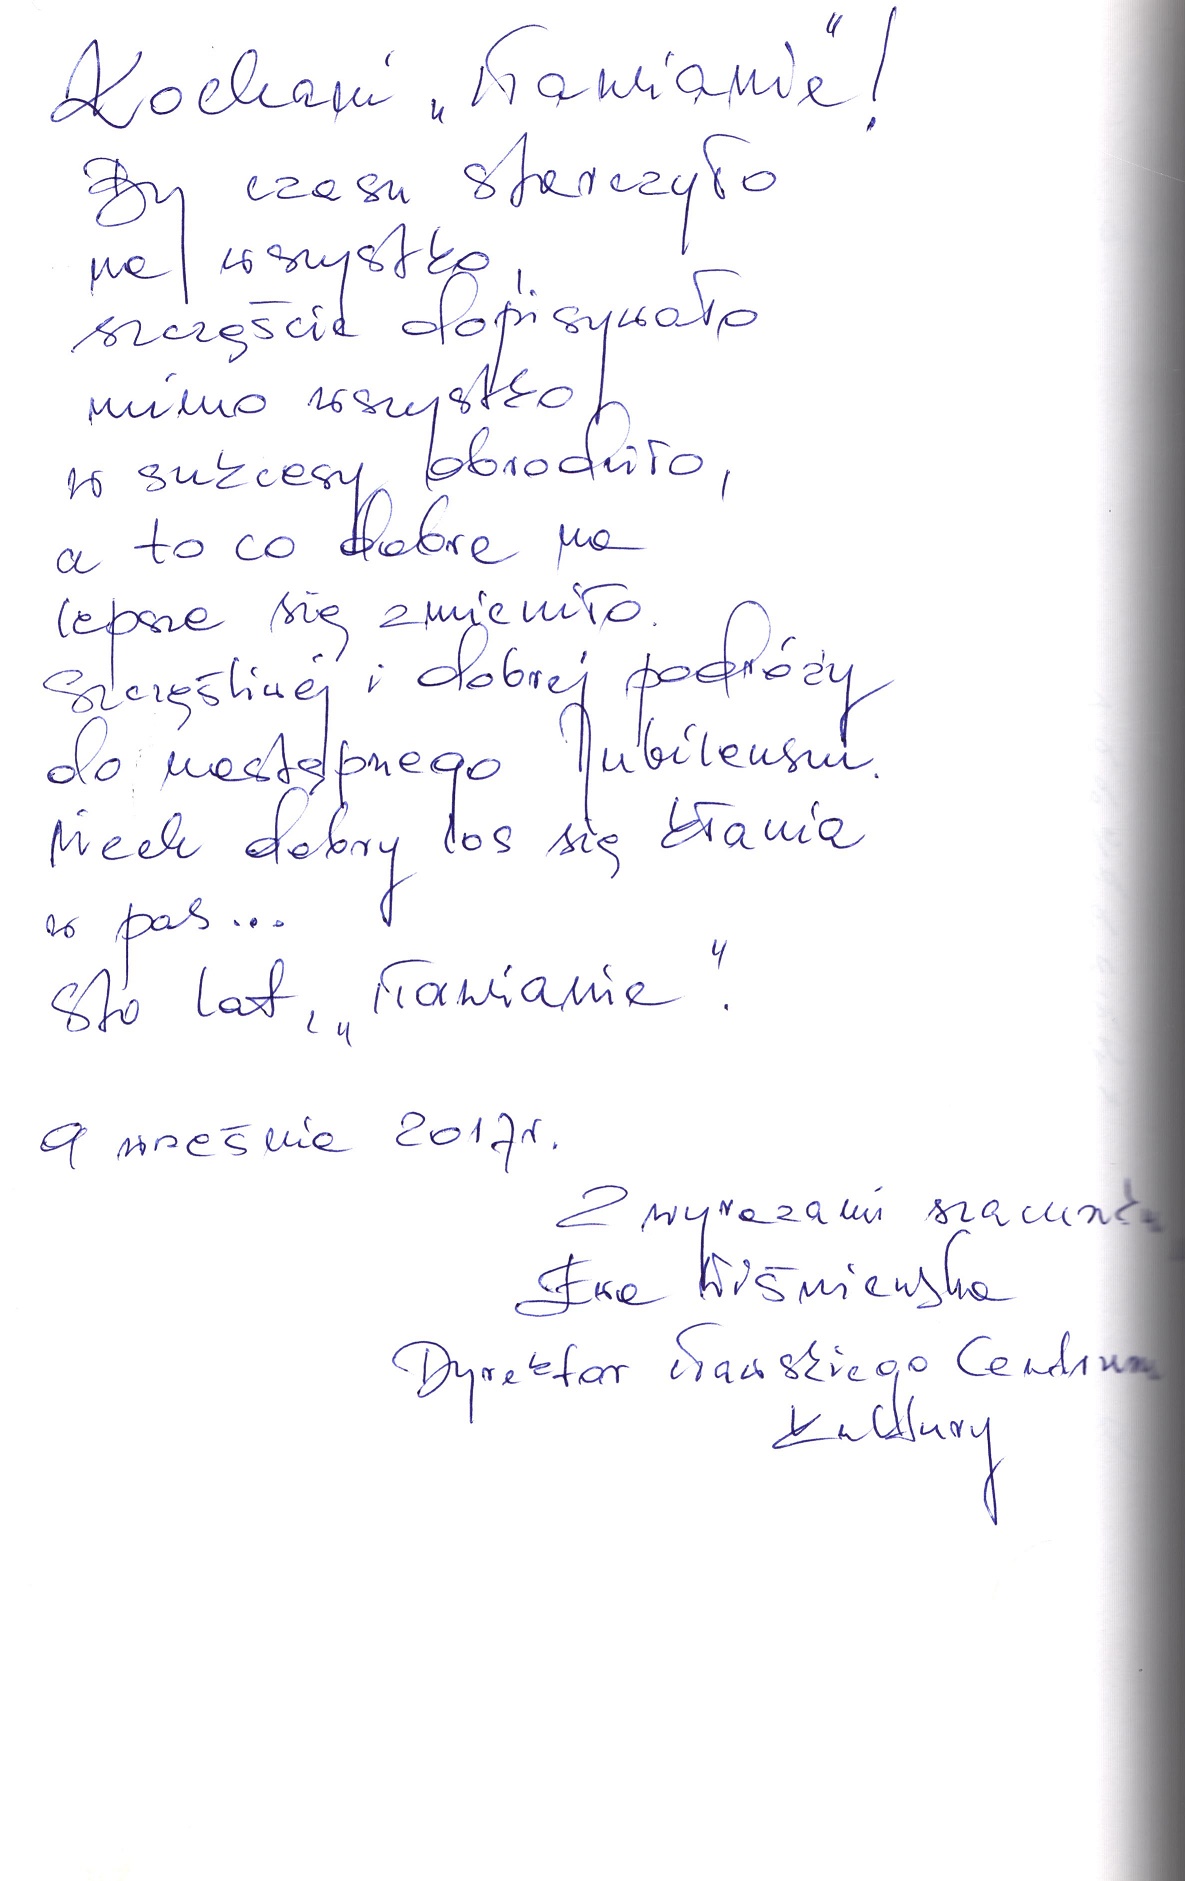 Kochani „Iławianie"!
By czasu starczyło
na wszystko,
szczęście dopisywało
mimo wszystko,
w sukcesy obrodziło,
a to co dobre na
lepsze się zmieniło.
Szczęśliwej i dobrej podróży
do następnego Jubileuszu.
Niech dobry los się kłania
w pas...
Sto lat, „Iławianie".
9 września 2017r.
Z wyrazami szacunku
Ewa Wiśniewska
Dyrektor Iławskiego Centrum
Kultury